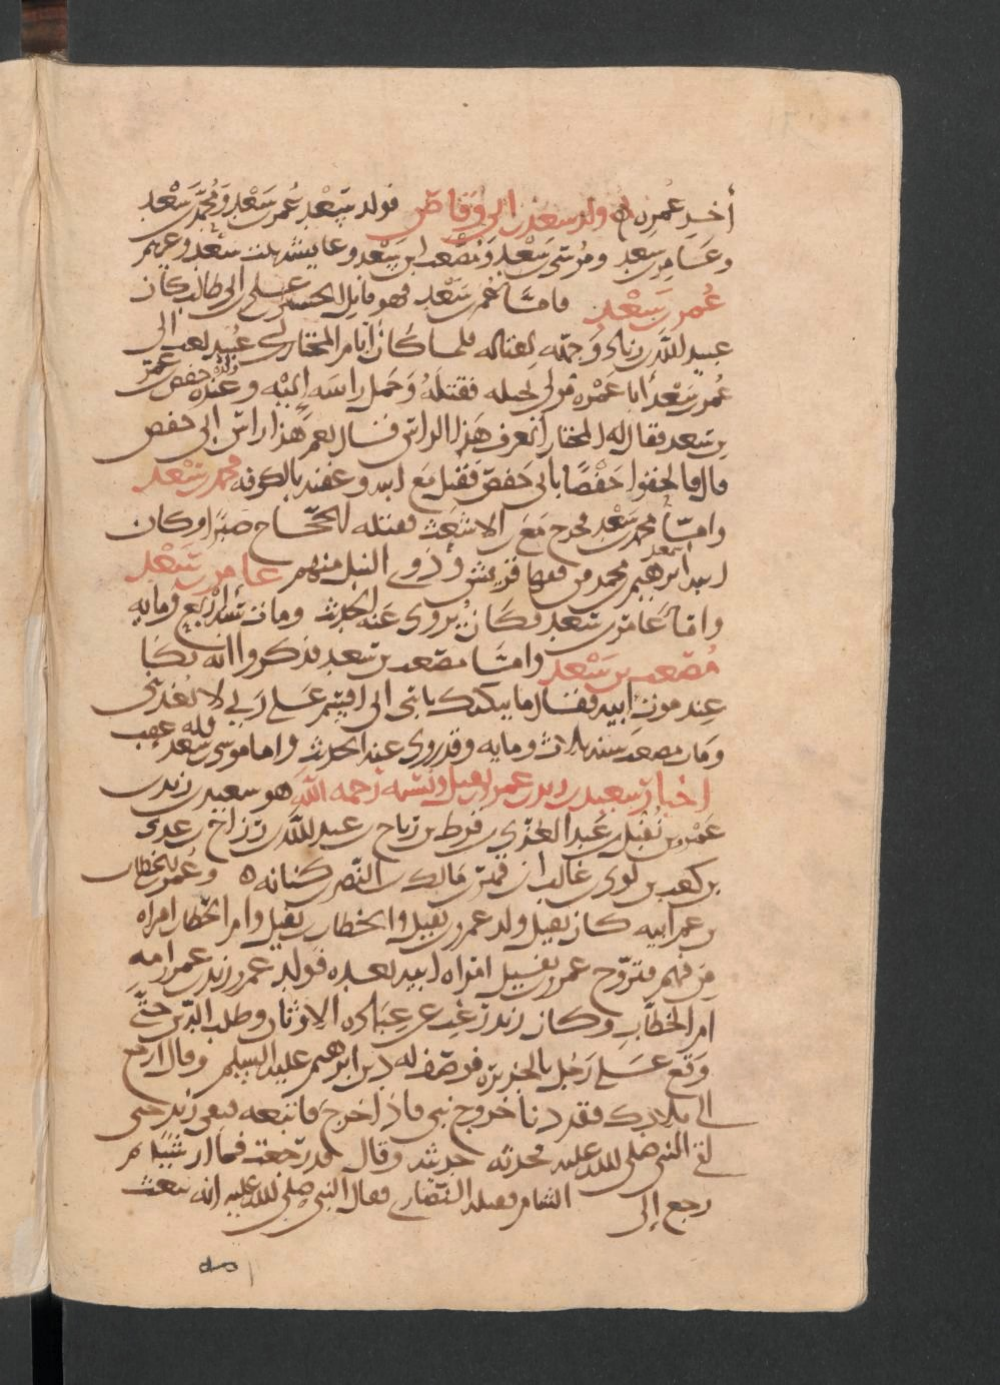 أخذ عُمره ولد سعد بن ابي وقاص فولد سعد عُمر بن سَعْد ومحمد بن سَعْد
وعَامر بن سعد وموسَى بن سَعْد ومُصْعب ابن سَعْد وعايشه بنت سَعْد وغيرهم
عُمر بن سَعْد فامّا عُمر بن سَعْد فهو قاتل الحسين بن علي بن ابي طالب كان
عبيد الله بن زياد وَجهه لقتاله فلما كان أيام المختار بن عُبيد بعث الى
عُمر بن سَعْد أبا عَمْره مولى بجيله فقتلَهُ وَحَمل راسَه إليْه وعندَه ولده حفص بن عمر
بن سَعد فقال له المختار أتعرف هَذا الراس فقال نعم هَذا راس ابي حفص
قال فالحقوا حَفْصًا بابي حَفص فقتل مَع ابيه وعقبه بالكوفه محمد بن سَعْد
وامّا محمد بن سَعْد فخرج مَع ابن الاشعَث فقتله الحجَّاج صَبْرًا وكان
ابنه ابرهيم بن محمد من فقها قريش وذَوي النبل منهم عامر بن سَعْد
وامّا عَامر بن سَعد فكان يُروى عَنه الحديث ومات سنة اربع ومايه
مُصْعب بن سَعْد وامّا مصعب بن سعد فذكروا انه بكا
عند موت ابيه فقال ما يبكيك يا بني اني اقسم على ربي لا يُعذبني
ومات مصعب سنه ثلاث ومايه وقد روى عنه الحديث واما موسى بن سعد فله عقب
اخبار سعيد بن زيد بن عمرو بن نفيل ونسَبه رَحمه الله هو سعيد بن زيد بن
عَمْرو بن نُفيل بن عَبد العُزّى بن قرط بن رياح بن عبد الله بن رزاح بن عدى
بن كعب بن لوى بن غالب بن فهر بن مَالك بن النضر بن كنانه وعُمر بن الخطاب
بن عم ابيه كان نفيل ولد عمرو بن نفيل والخطاب بن نفيل وام الخطاب امراه
مِن فهم فتزوج عمرو بن نفيل امراه ابيه بعده فولد عمرو زيد بن عمرو امه
ام الخطّاب وكان زيد رَغِبَ عن عبَادة الاوثان وطلب الدّين حتّى
وَقع عَلى رَجُل بالجزيرة فوصَف له دين ابرهيم عليه السلم وقال ارجع
الى بلادك فقد دنا خروج نبي فاذا خرج فاتبعه فبقي زيد حتى
لقى النبي صلى الله عليه فحدثه حديثه وقال قد رجعت فما ارى شَيا ثم
رجع إلى الشام فقتله النصَارى فقال النبي صلى الله عليه انه يبعث